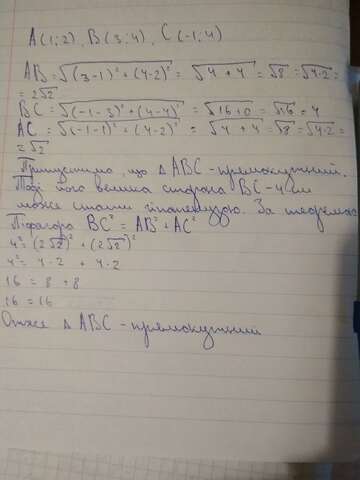 A(1;2), B(3;4), C(-1;4)
AB = √((3-1)² + (4-2)²) = √(4+4) = √8 = √(4·2) =
= 2√2
BC = √((-1-3)² + (4-4)²) = √(16+0) = √16 = 4
AC = √((-1-1)² + (4-2)²) = √(4+4) = √8 = √(4·2) =
= 2√2
Припустимо, що △ABC - прямокутний.
Тоді його велика сторона BC - 4 см
може стати гіпотенузою. За теоремою
Піфагора BC² = AB² + AC²
4² = (2√2)² + (2√2)²
4² = 4·2 + 4·2
16 = 8 + 8
16 = 16
Отже △ABC - прямокутний